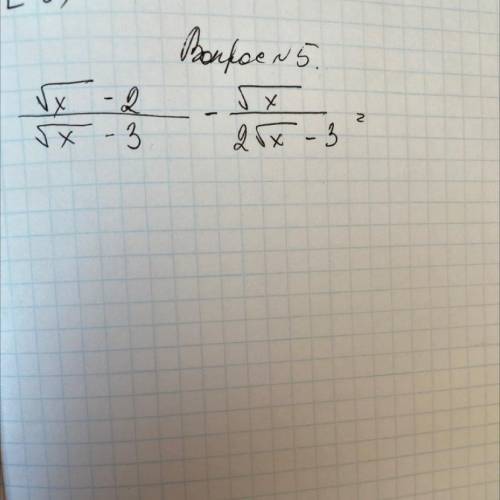 Вопрос N 5.
(√x - 2)/(√x - 3) - √x/(2√x - 3) =